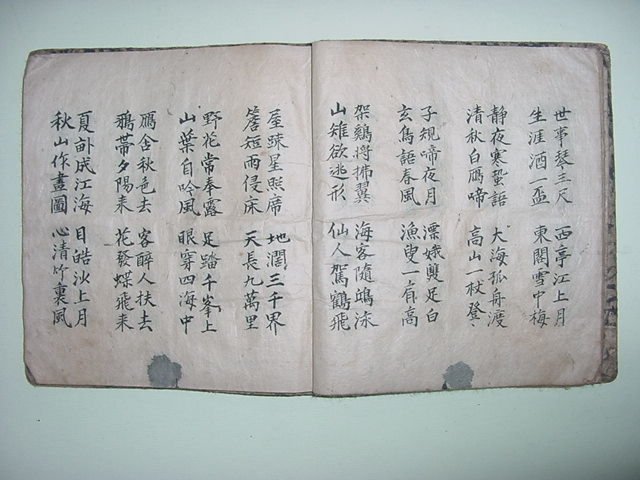 世事琴三尺 西亭江上月
生涯酒一盃 東閣雪中梅
静夜寒蛩語 大海孤舟渡
清秋白鴈啼 高山一杖登
子規啼夜月 漂娥雙足白
玄鳥語春風 漁叟一肩高
架鷄將拂翼 海客隨鴎泳
山雉欲逃形 仙人駕鶴飛
屋疎星照席 地濶三千界
簷短雨侵床 天長九萬里
野花常奉露 足踏千峯上
山葉自吟風 眼穿四海中
鴈舍秋色去 客醉人扶去
鴉帶夕陽来 花發蝶飛来
夏畆成江海 目皓沙上月
秋山作畫圖 心清竹裏風